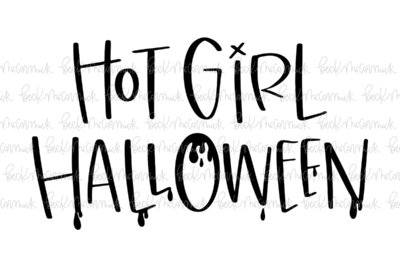 HOT GIRL
HALLOWEEN